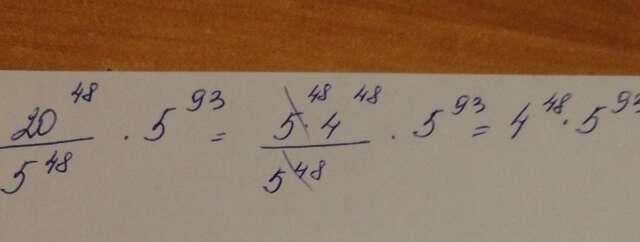 20^48 / 5^48 · 5^93 = 5^48 · 4^48 / 5^48 · 5^93 = 4^48 · 5^93